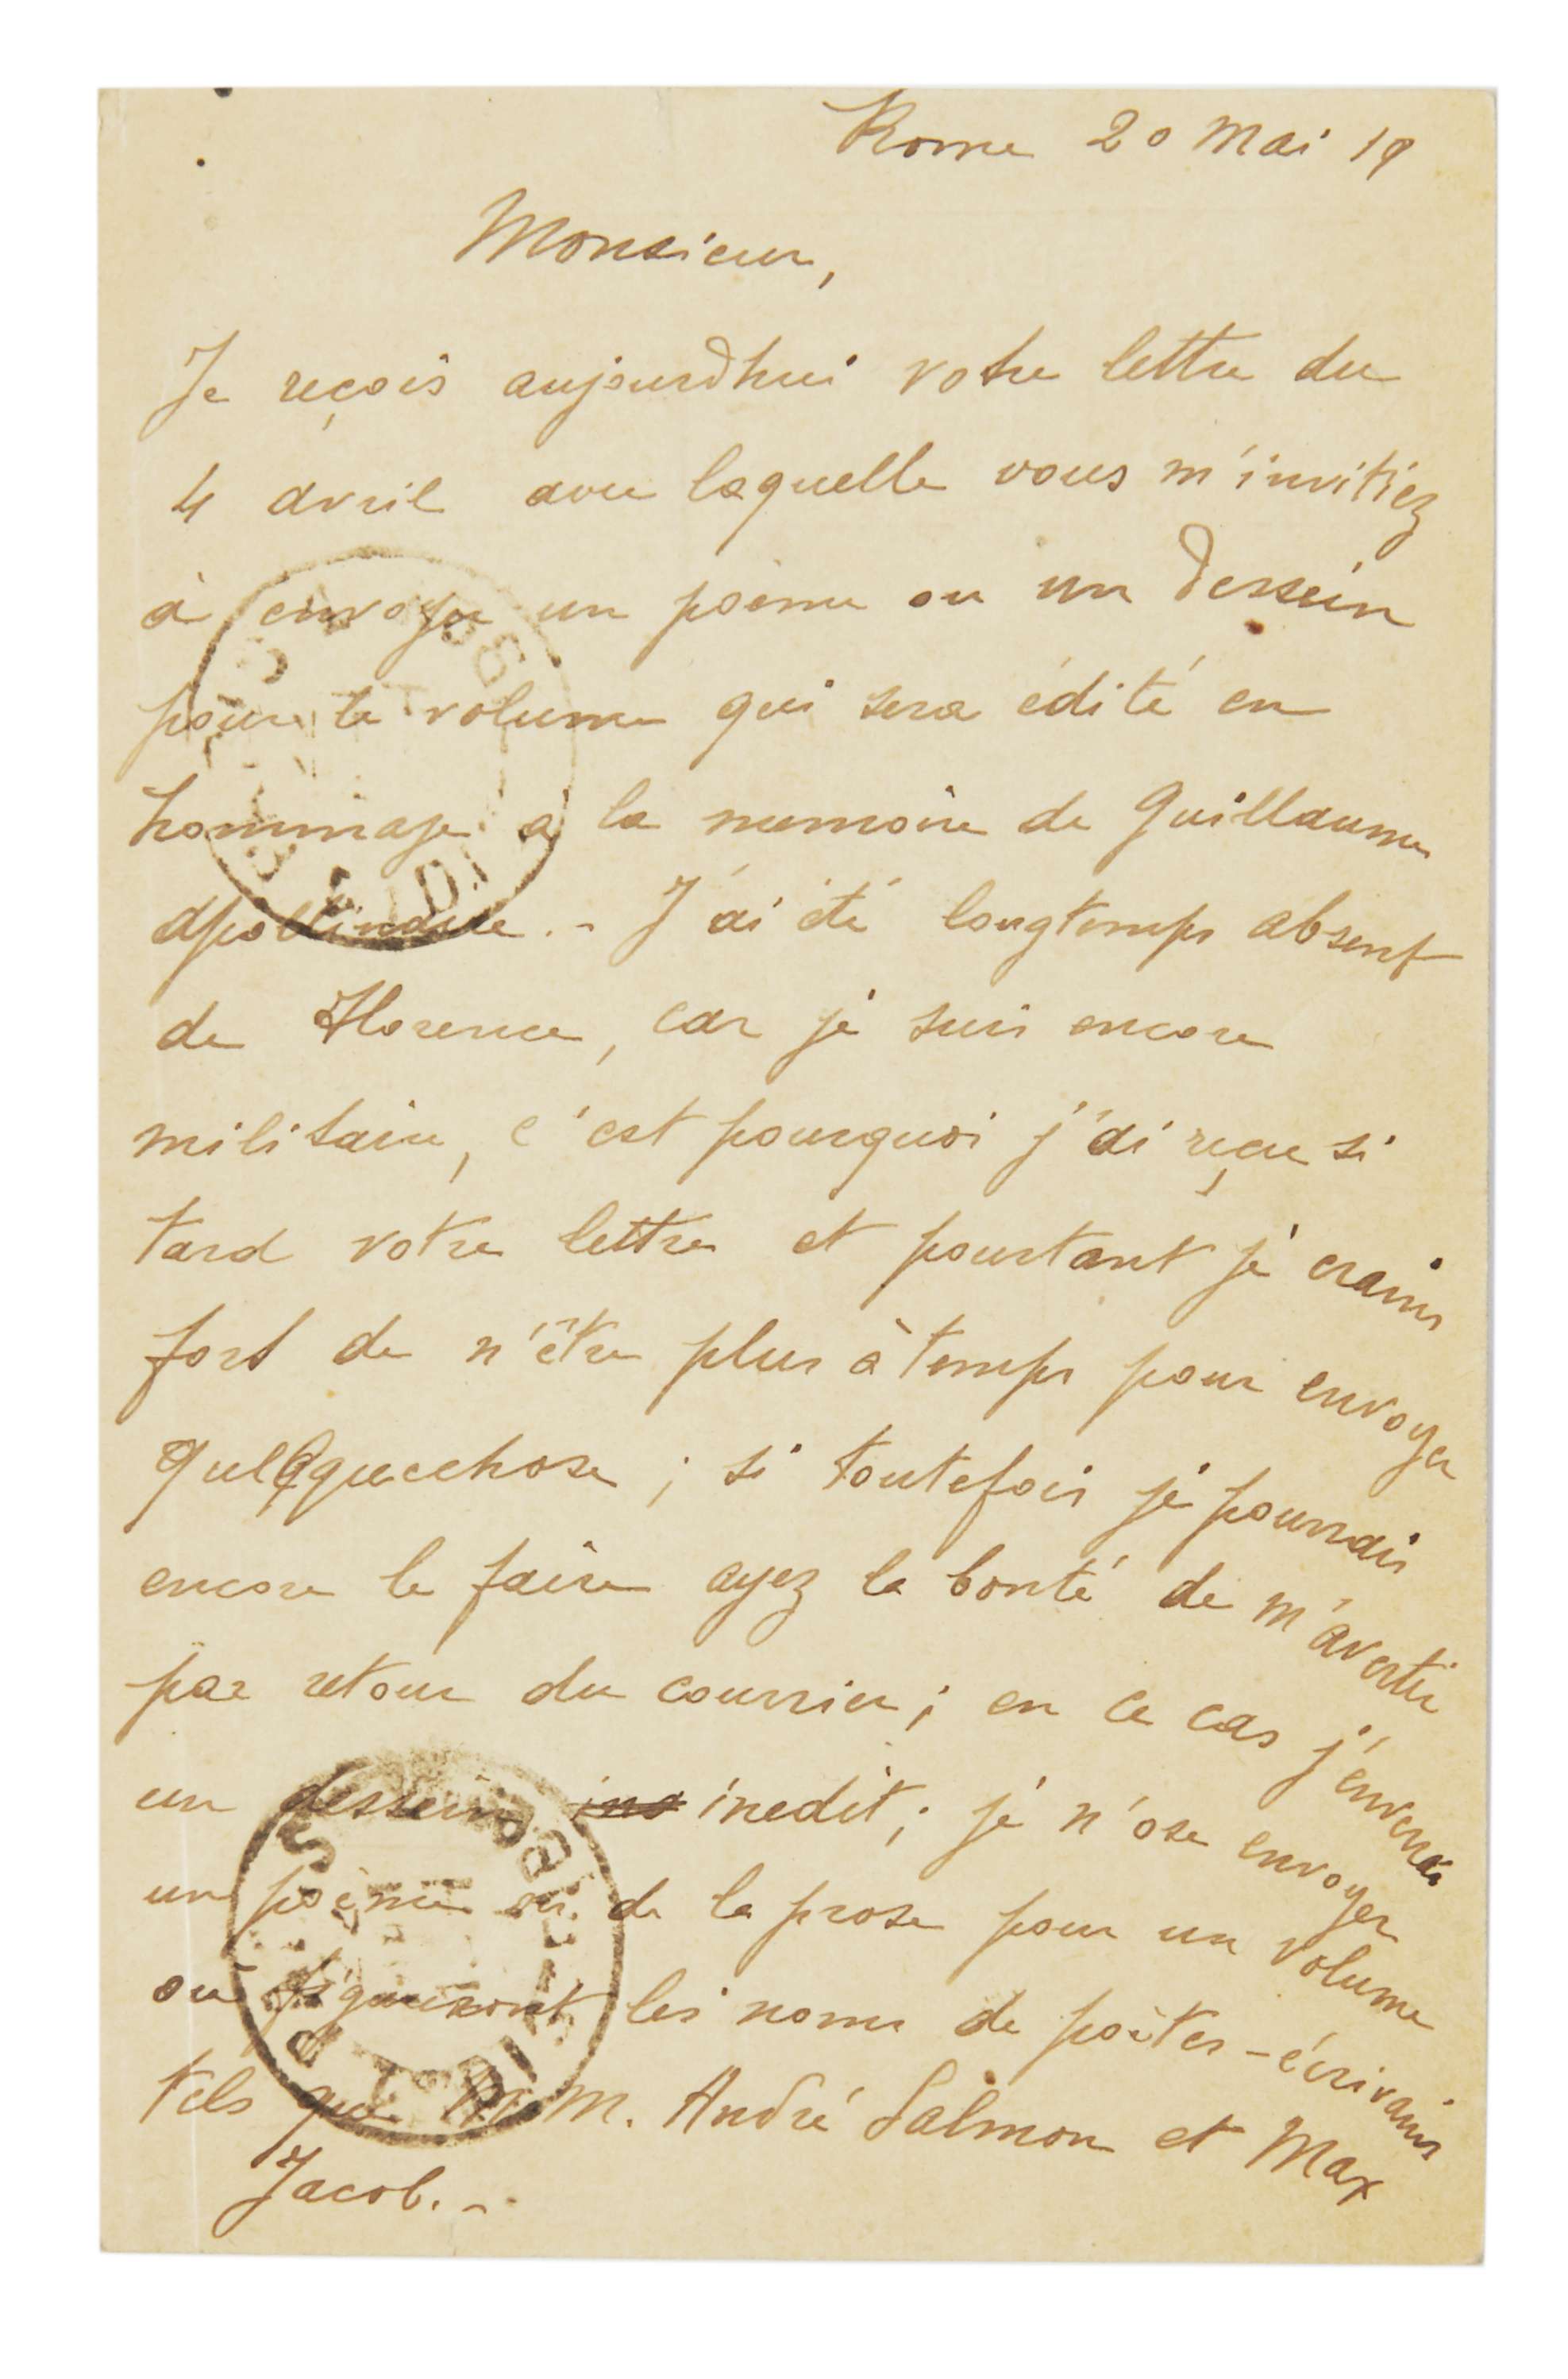 Rome 20 Mai 19
Monsieur,
Je reçois aujourdhui votre lettre du
4 avril avec laquelle vous m'invitiez
à envoyer un poème ou un dessein
pour le volume qui sera édité en
hommage a la memoire de Guillaume
Apollinaire. - J'ai été longtemps absent
de Florence, car je suis encore
militaire, c'est pourquoi j'ai reçu si
tard votre lettre et pourtant je crains
fort de n'être plus à temps pour envoyer
quelquechose ; si toutefois je pourrais
encore le faire ayez la bonté de m'avertir
par retour du courrier ; en ce cas j'enverrai
un dessein inedit ; je n'ose envoyer
un poème ou de la prose pour un volume
où figureront les noms de poètes - écrivains
tels que M.M. André Salmon et Max
Jacob. -